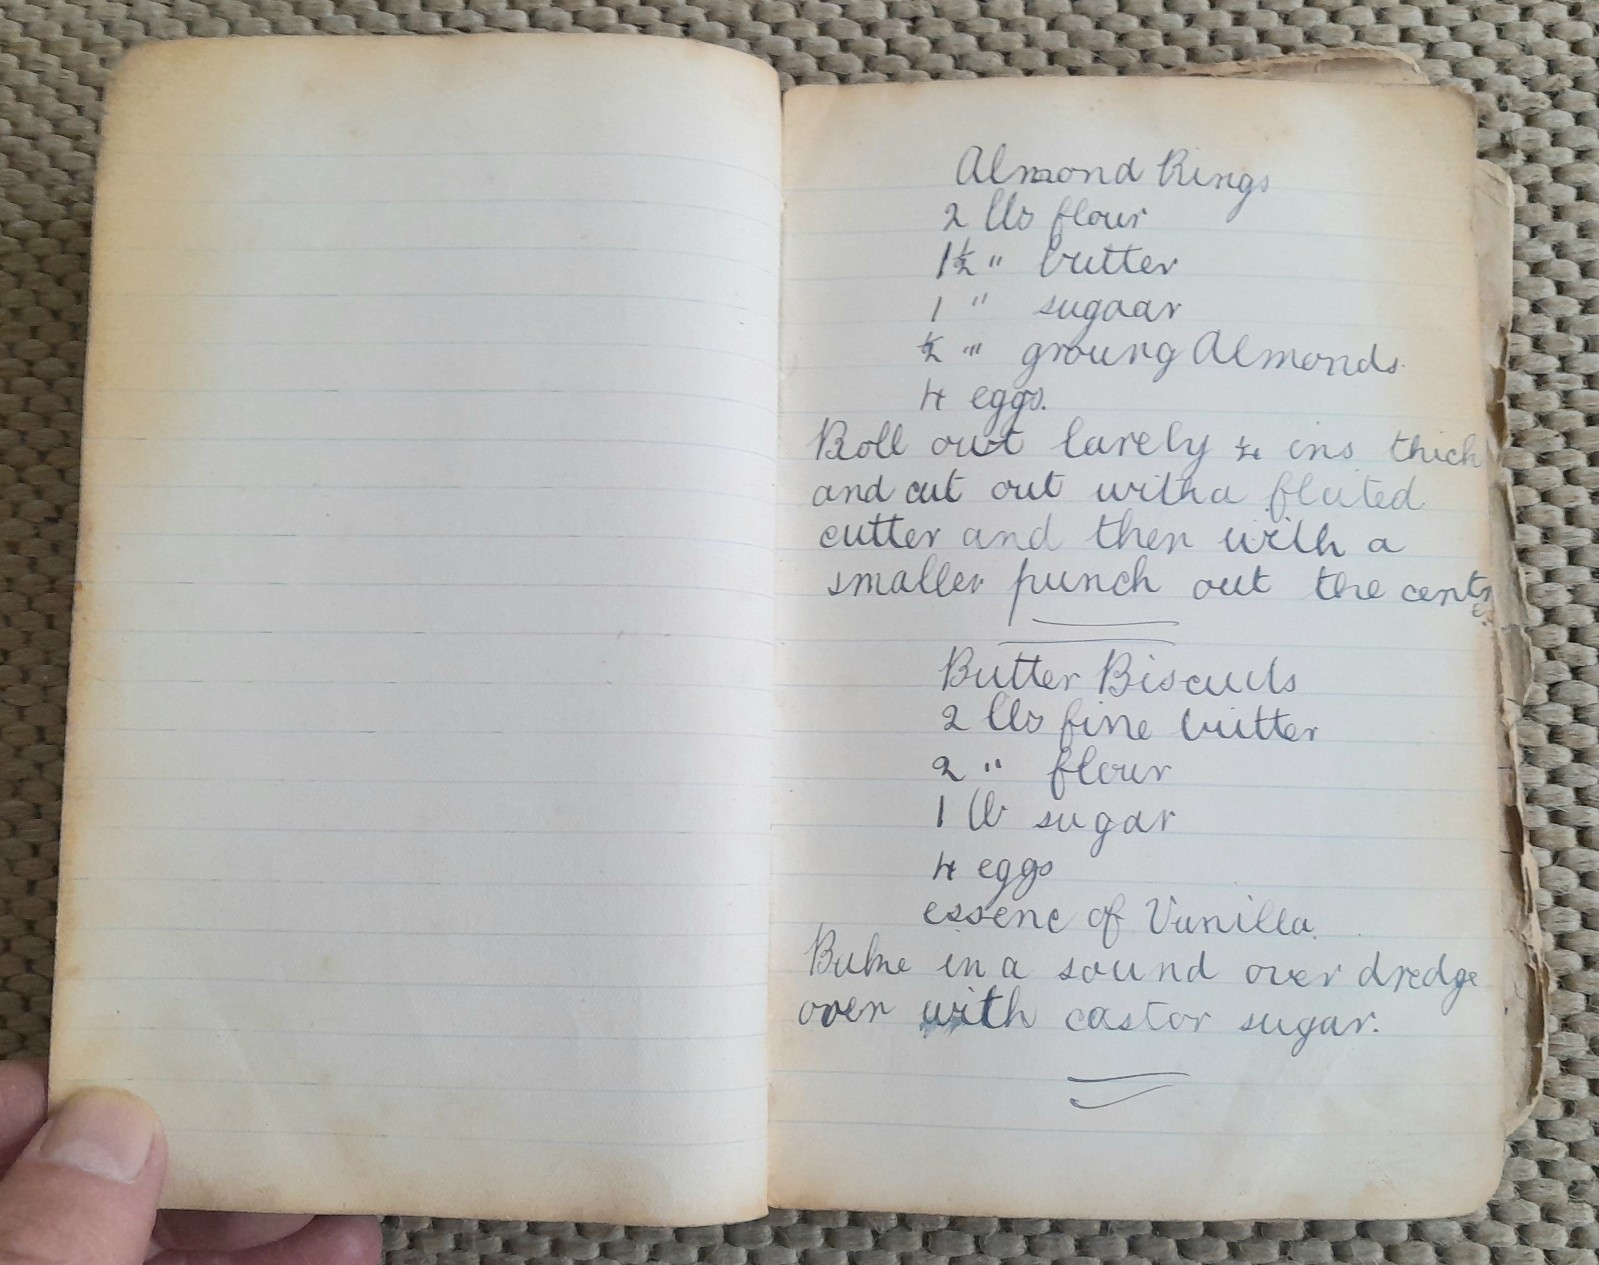 Almond Rings
2 lbs flour
1½ " butter
1 " sugaar
½ " groung Almonds.
4 eggs.
Roll out larely ¼ ins thick
and cut out with a fluted
cutter and then with a
smaller punch out the centre.
Butter Biscuits
2 lbs fine butter
2 " flour
1 lb sugar
4 eggs
essenc of Vanilla.
in a sound over dredge
oven with castor sugar.